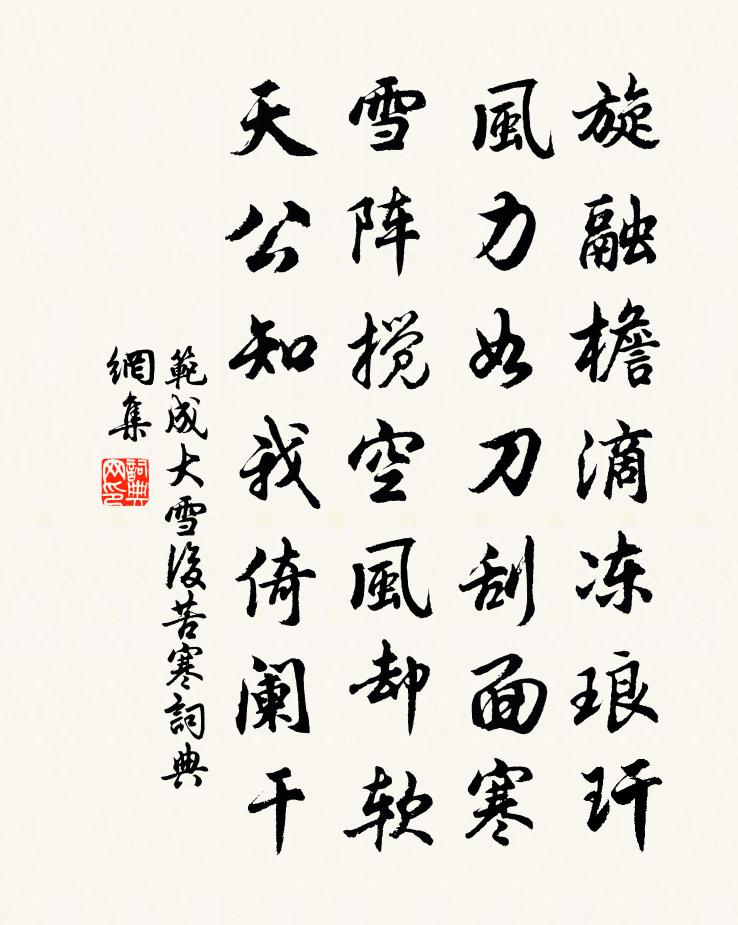 旋融檐滴冻琅玕
風力如刀刮面寒
雪阵搅空風却软
天公知我倚阑干
範成大雪後苦寒詞典
網集
詞典網印